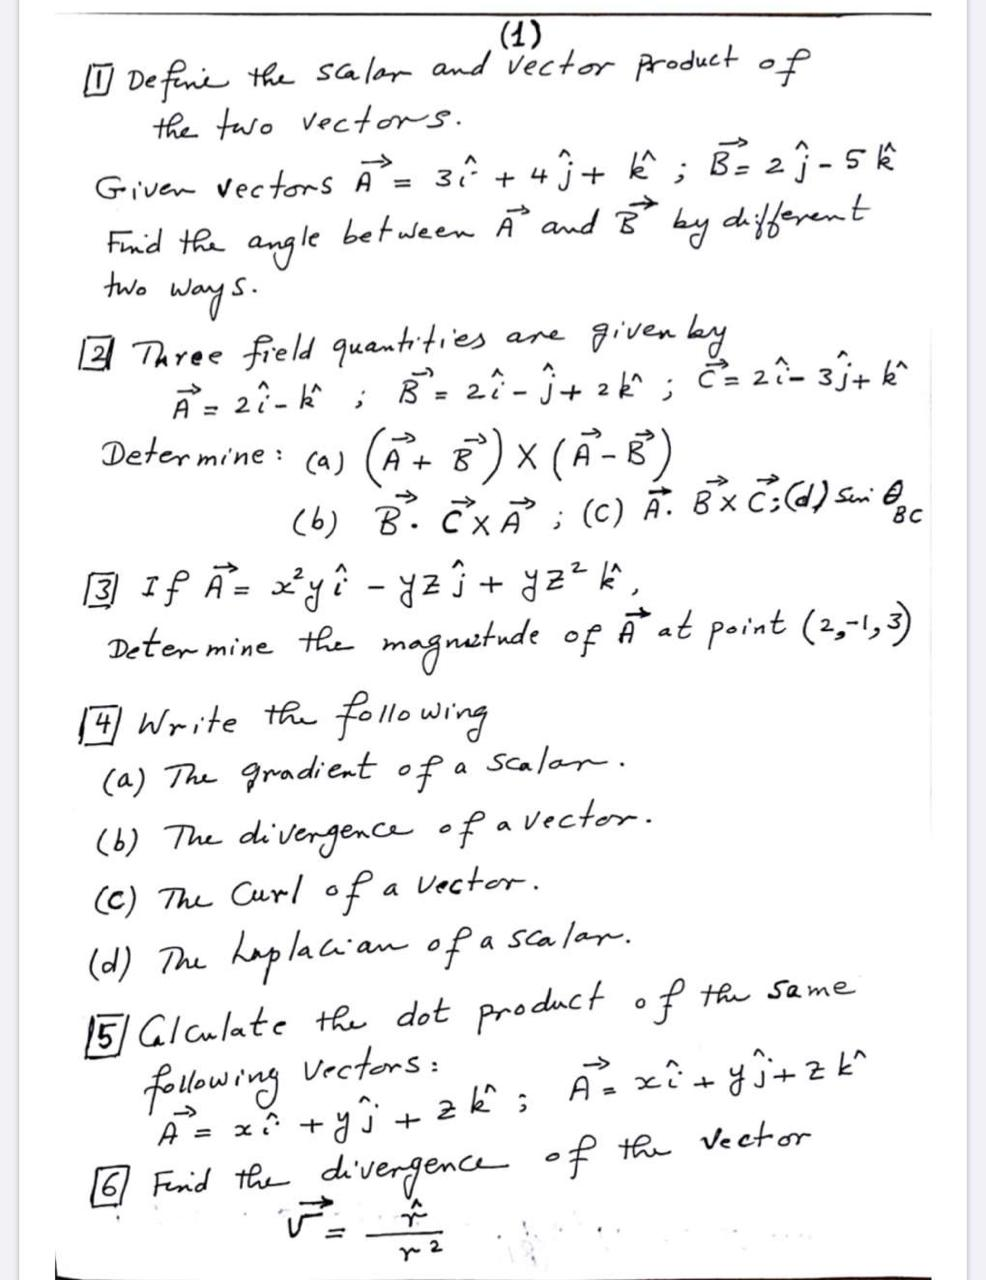 (1)
1 Define the scalar and vector product of
the two vectors.
Given vectors A⃗ = 3î + 4ĵ + k̂ ; B⃗ = 2ĵ - 5k̂
Find the angle between A⃗ and B⃗ by different
two ways.
2 Three field quantities are given by
A⃗ = 2î - k̂ ; B⃗ = 2î - ĵ + 2k̂ ; C⃗ = 2î - 3ĵ + k̂
Determine : (a) (A⃗ + B⃗) X (A⃗ - B⃗)
(b) B⃗ . C⃗ X A⃗ ; (C) A⃗ . B⃗ X C⃗ ; (d) Sin θ_BC
3 If A⃗ = x²y î - yz ĵ + yz² k̂ ,
Determine the magnetude of A⃗ at point (2,-1,3)
4 Write the following
(a) The gradient of a scalar .
(b) The divergence of a vector .
(C) The Curl of a vector .
(d) The Laplacian of a scalar.
5 Calculate the dot product of the same
following vectors :
A⃗ = xî + yĵ + zk̂ ; A⃗ = xî + yĵ + zk̂
6 Find the divergence of the vector
v⃗ = r̂ / r²